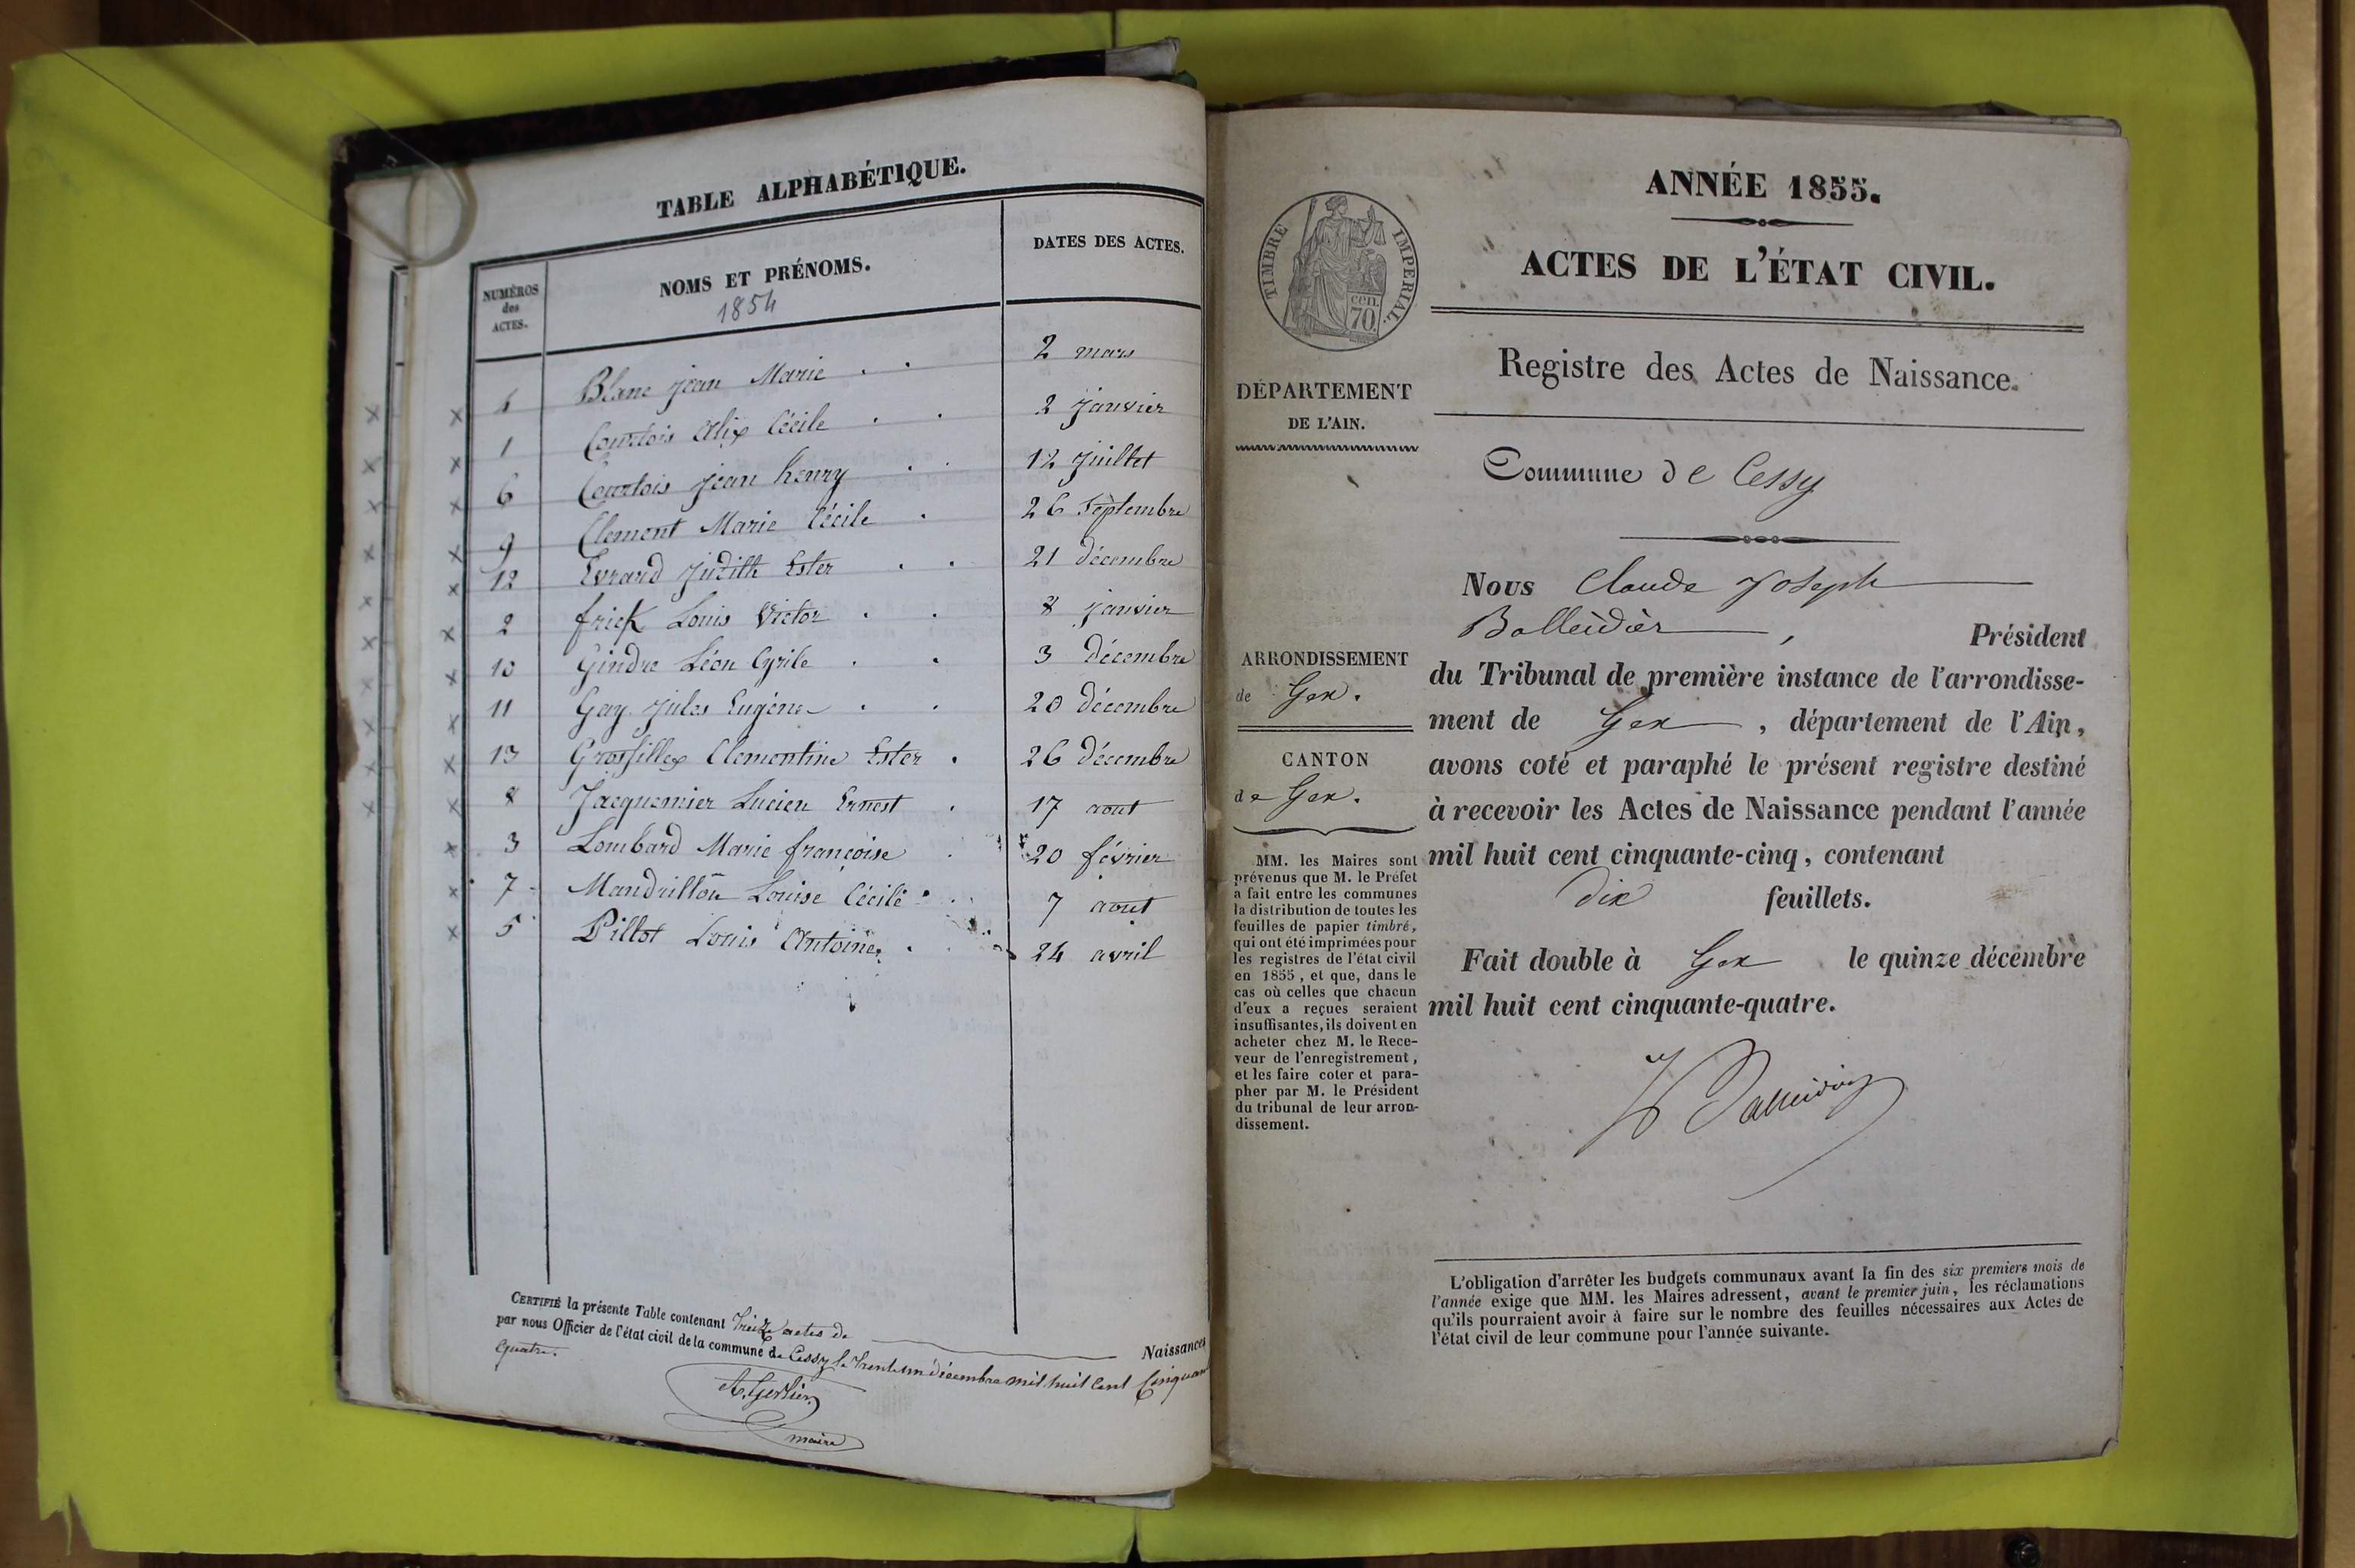 TABLE ALPHABÉTIQUE.
NUMÉROS des ACTES. NOMS ET PRÉNOMS. DATES DES ACTES.
1854
Blanc Jean Marie 2 mars
1 Courtois Alix Cécile 2 janvier
6 Courtois Jean henry 12 juillet
9 Clement Marie Cécile 26 Septembre
12 Evrard Judith Ester 21 décembre
2 frick Louis Victor 8 janvier
10 Gindre Léon Cyrile 3 décembre
11 Gay Jules Eugène 20 décembre
13 Grosfillex Clementine Ester 26 décembre
8 Jacquemier Lucien Ernest 17 aout
3 Lombard Marie françoise 20 février
7 Mandrillon Louise Cécile 7 aout
5 Pillot Louis Antoine 24 avril
CERTIFIÉ la présente Table contenant treize actes de Naissances
par nous Officier de l'état civil de la commune de Cessy le trente un décembre mil huit cent Cinquante
quatre.
maire
ANNÉE 1855.
ACTES DE L'ÉTAT CIVIL.
TIMBRE IMPERIAL.
cen.
70
Registre des Actes de Naissance.
DÉPARTEMENT
DE L'AIN.
Commune de Cessy
Nous Claude Joseph
Balleidier, Président
du Tribunal de première instance de l'arrondisse-
ment de Gex, département de l'Ain,
avons coté et paraphé le présent registre destiné
à recevoir les Actes de Naissance pendant l'année
mil huit cent cinquante-cinq, contenant
dix feuillets.
Fait double à Gex le quinze décembre
mil huit cent cinquante-quatre.
ARRONDISSEMENT
de Gex.
CANTON
de Gex.
MM. les Maires sont
prévenus que M. le Préfet
a fait entre les communes
la distribution de toutes les
feuilles de papier timbré,
qui ont été imprimées pour
les registres de l'état civil
en 1855, et que, dans le
cas où celles que chacun
d'eux a reçues seraient
insuffisantes, ils doivent en
acheter chez M. le Rece-
veur de l'enregistrement,
et les faire coter et para-
pher par M. le Président
du tribunal de leur arron-
dissement.
L'obligation d'arrêter les budgets communaux avant la fin des six premiers mois de
l'année exige que MM. les Maires adressent, avant le premier juin, les réclamations
qu'ils pourraient avoir à faire sur le nombre des feuilles nécessaires aux Actes de
l'état civil de leur commune pour l'année suivante.